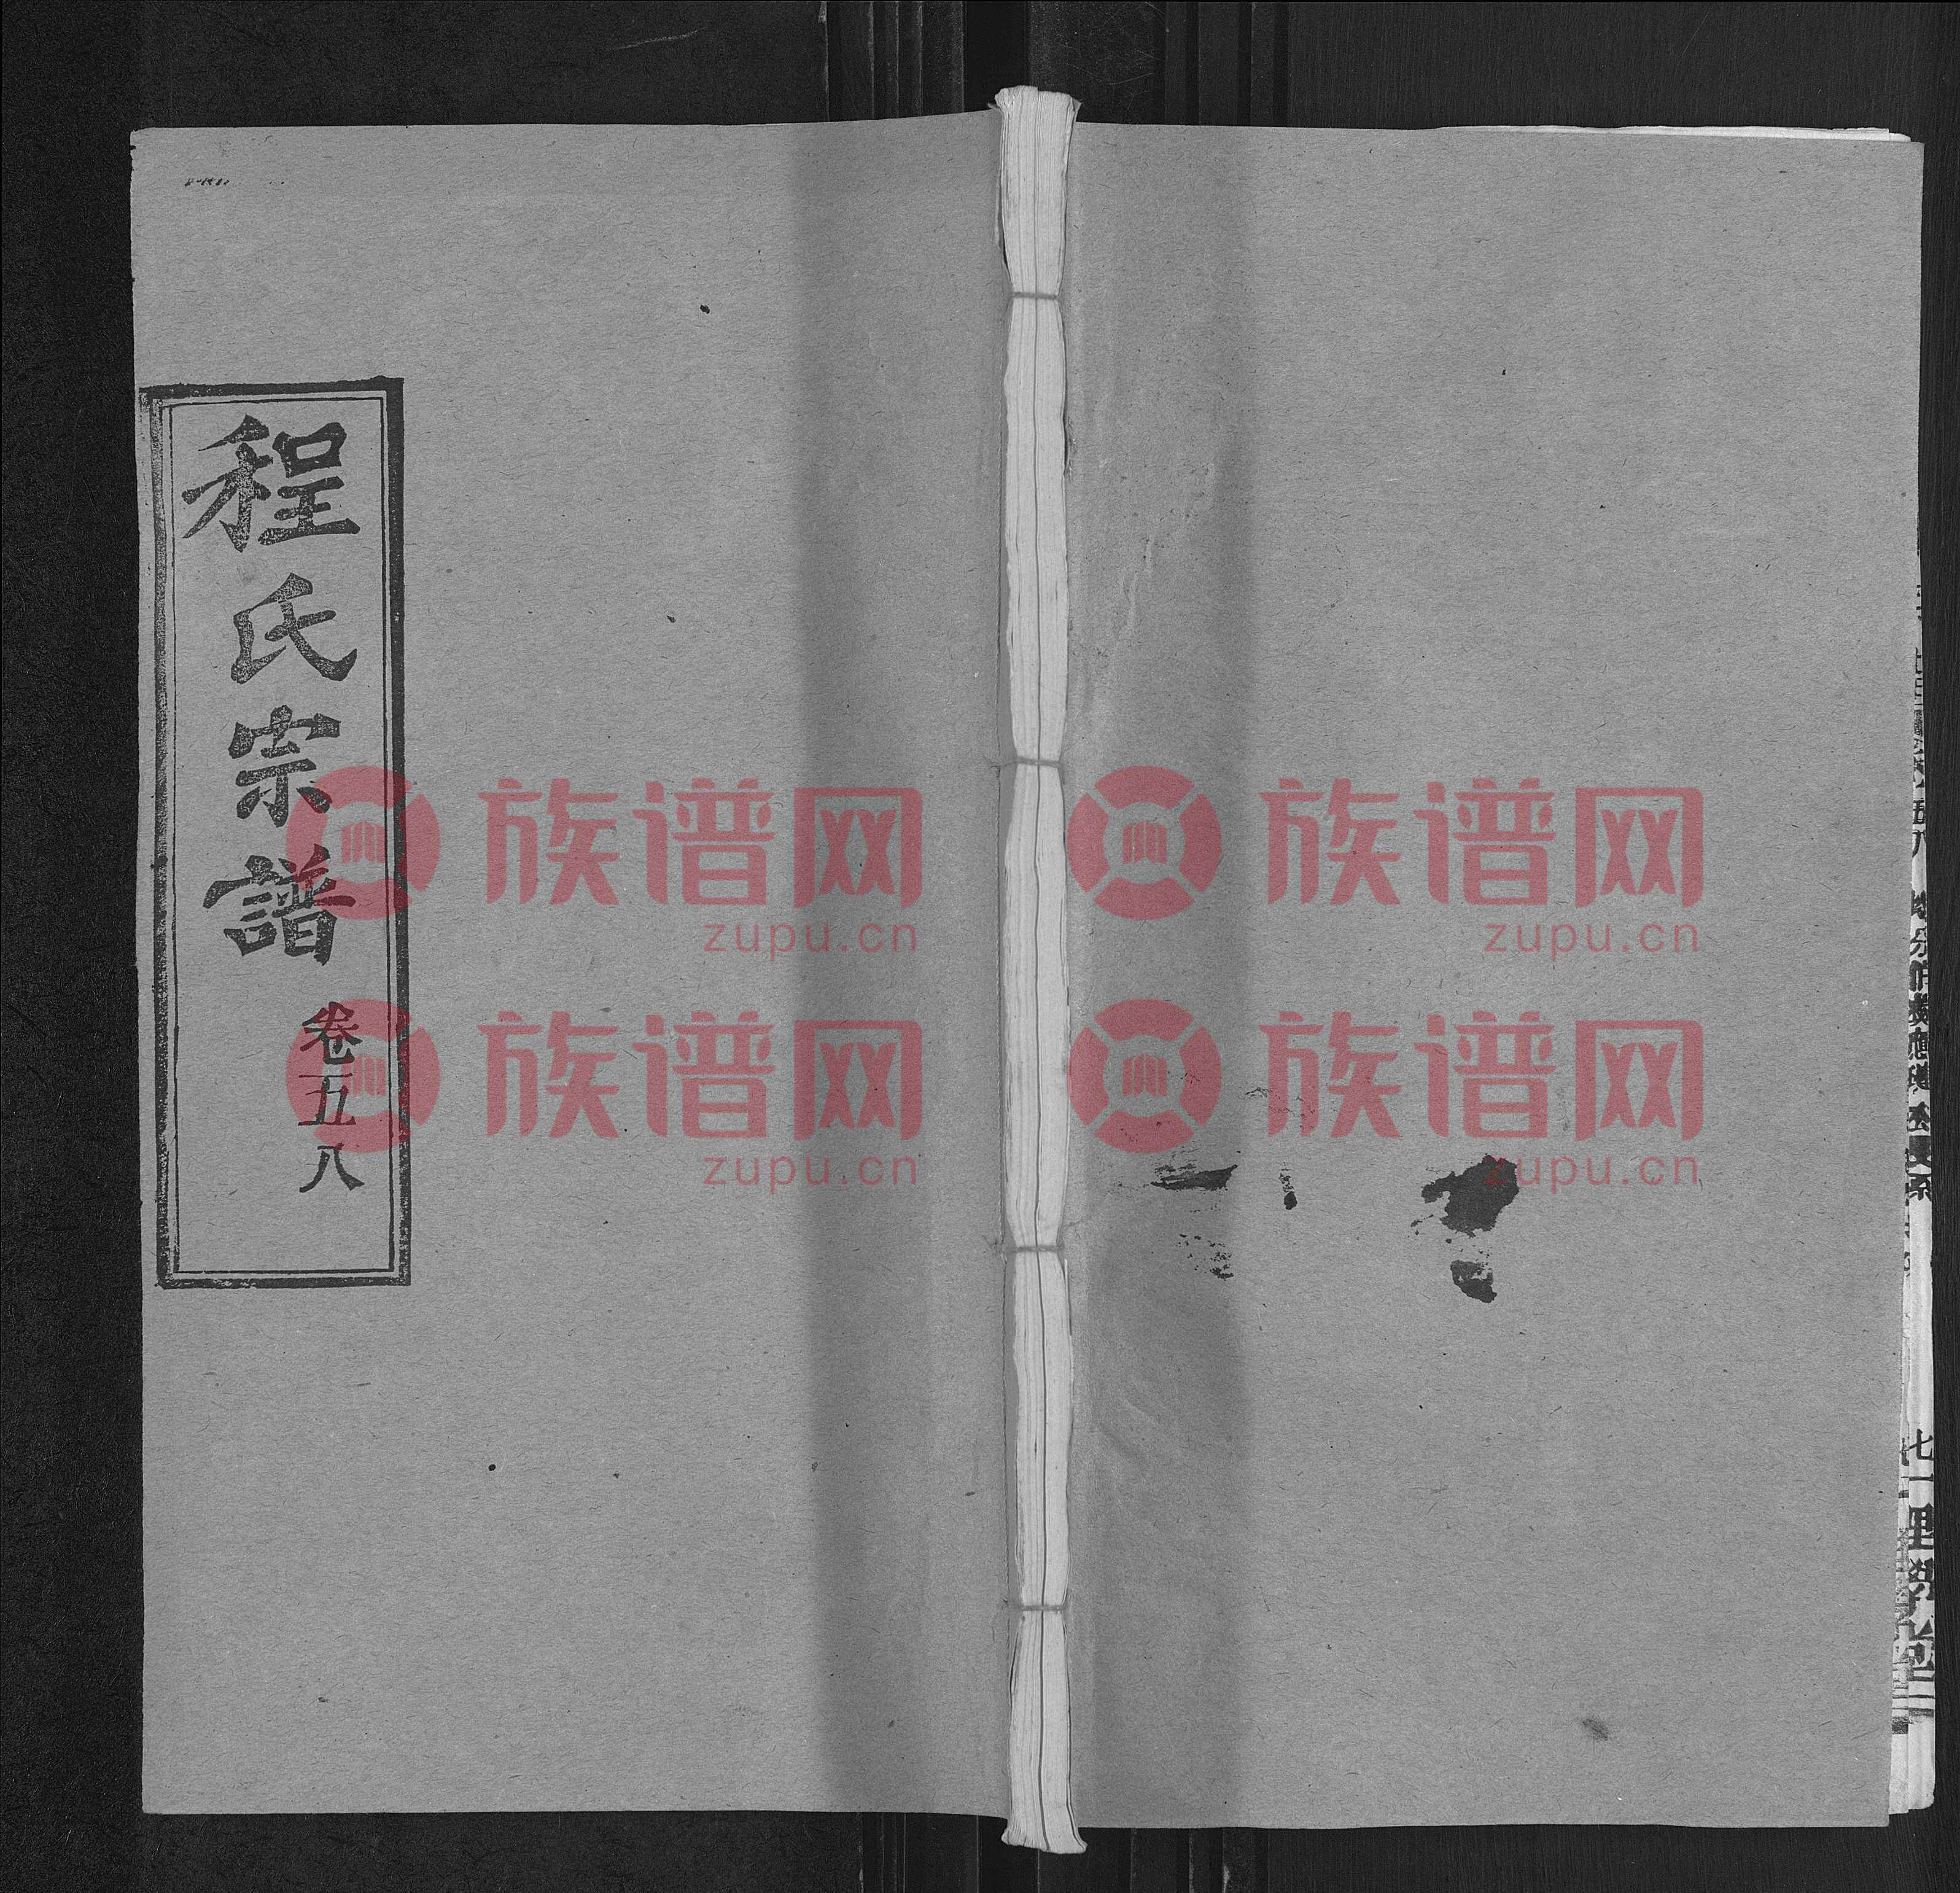 程氏宗譜
卷五八
族谱网
zupu.cn
族谱网
zupu.cn
族谱网
zupu.cn
族谱网
zupu.cn